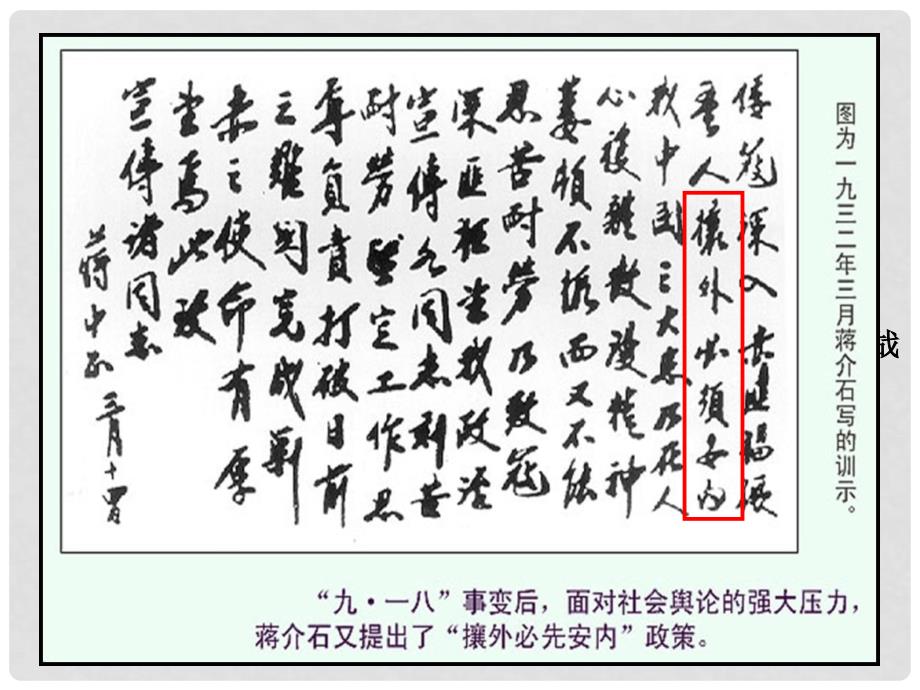 图为一九三二年三月蒋介石写的训示。
倭寇深入赤匪
吾人攘外必須安内
我中國之大患乃在人
心複雜散漫精神
萎頓不振而又不能
忍苦耐勞乃致寇
深匪猖望我政治
宣傳各同志刻苦
耐勞堅定工作忍
辱負責打破目前
之難関完成剿
赤之使命有厚
望焉此致
宣傳諸同志
蒋中正 三月十四日
“九·一八”事变后，面对社会舆论的强大压力，
蒋介石又提出了“攘外必先安内”政策。